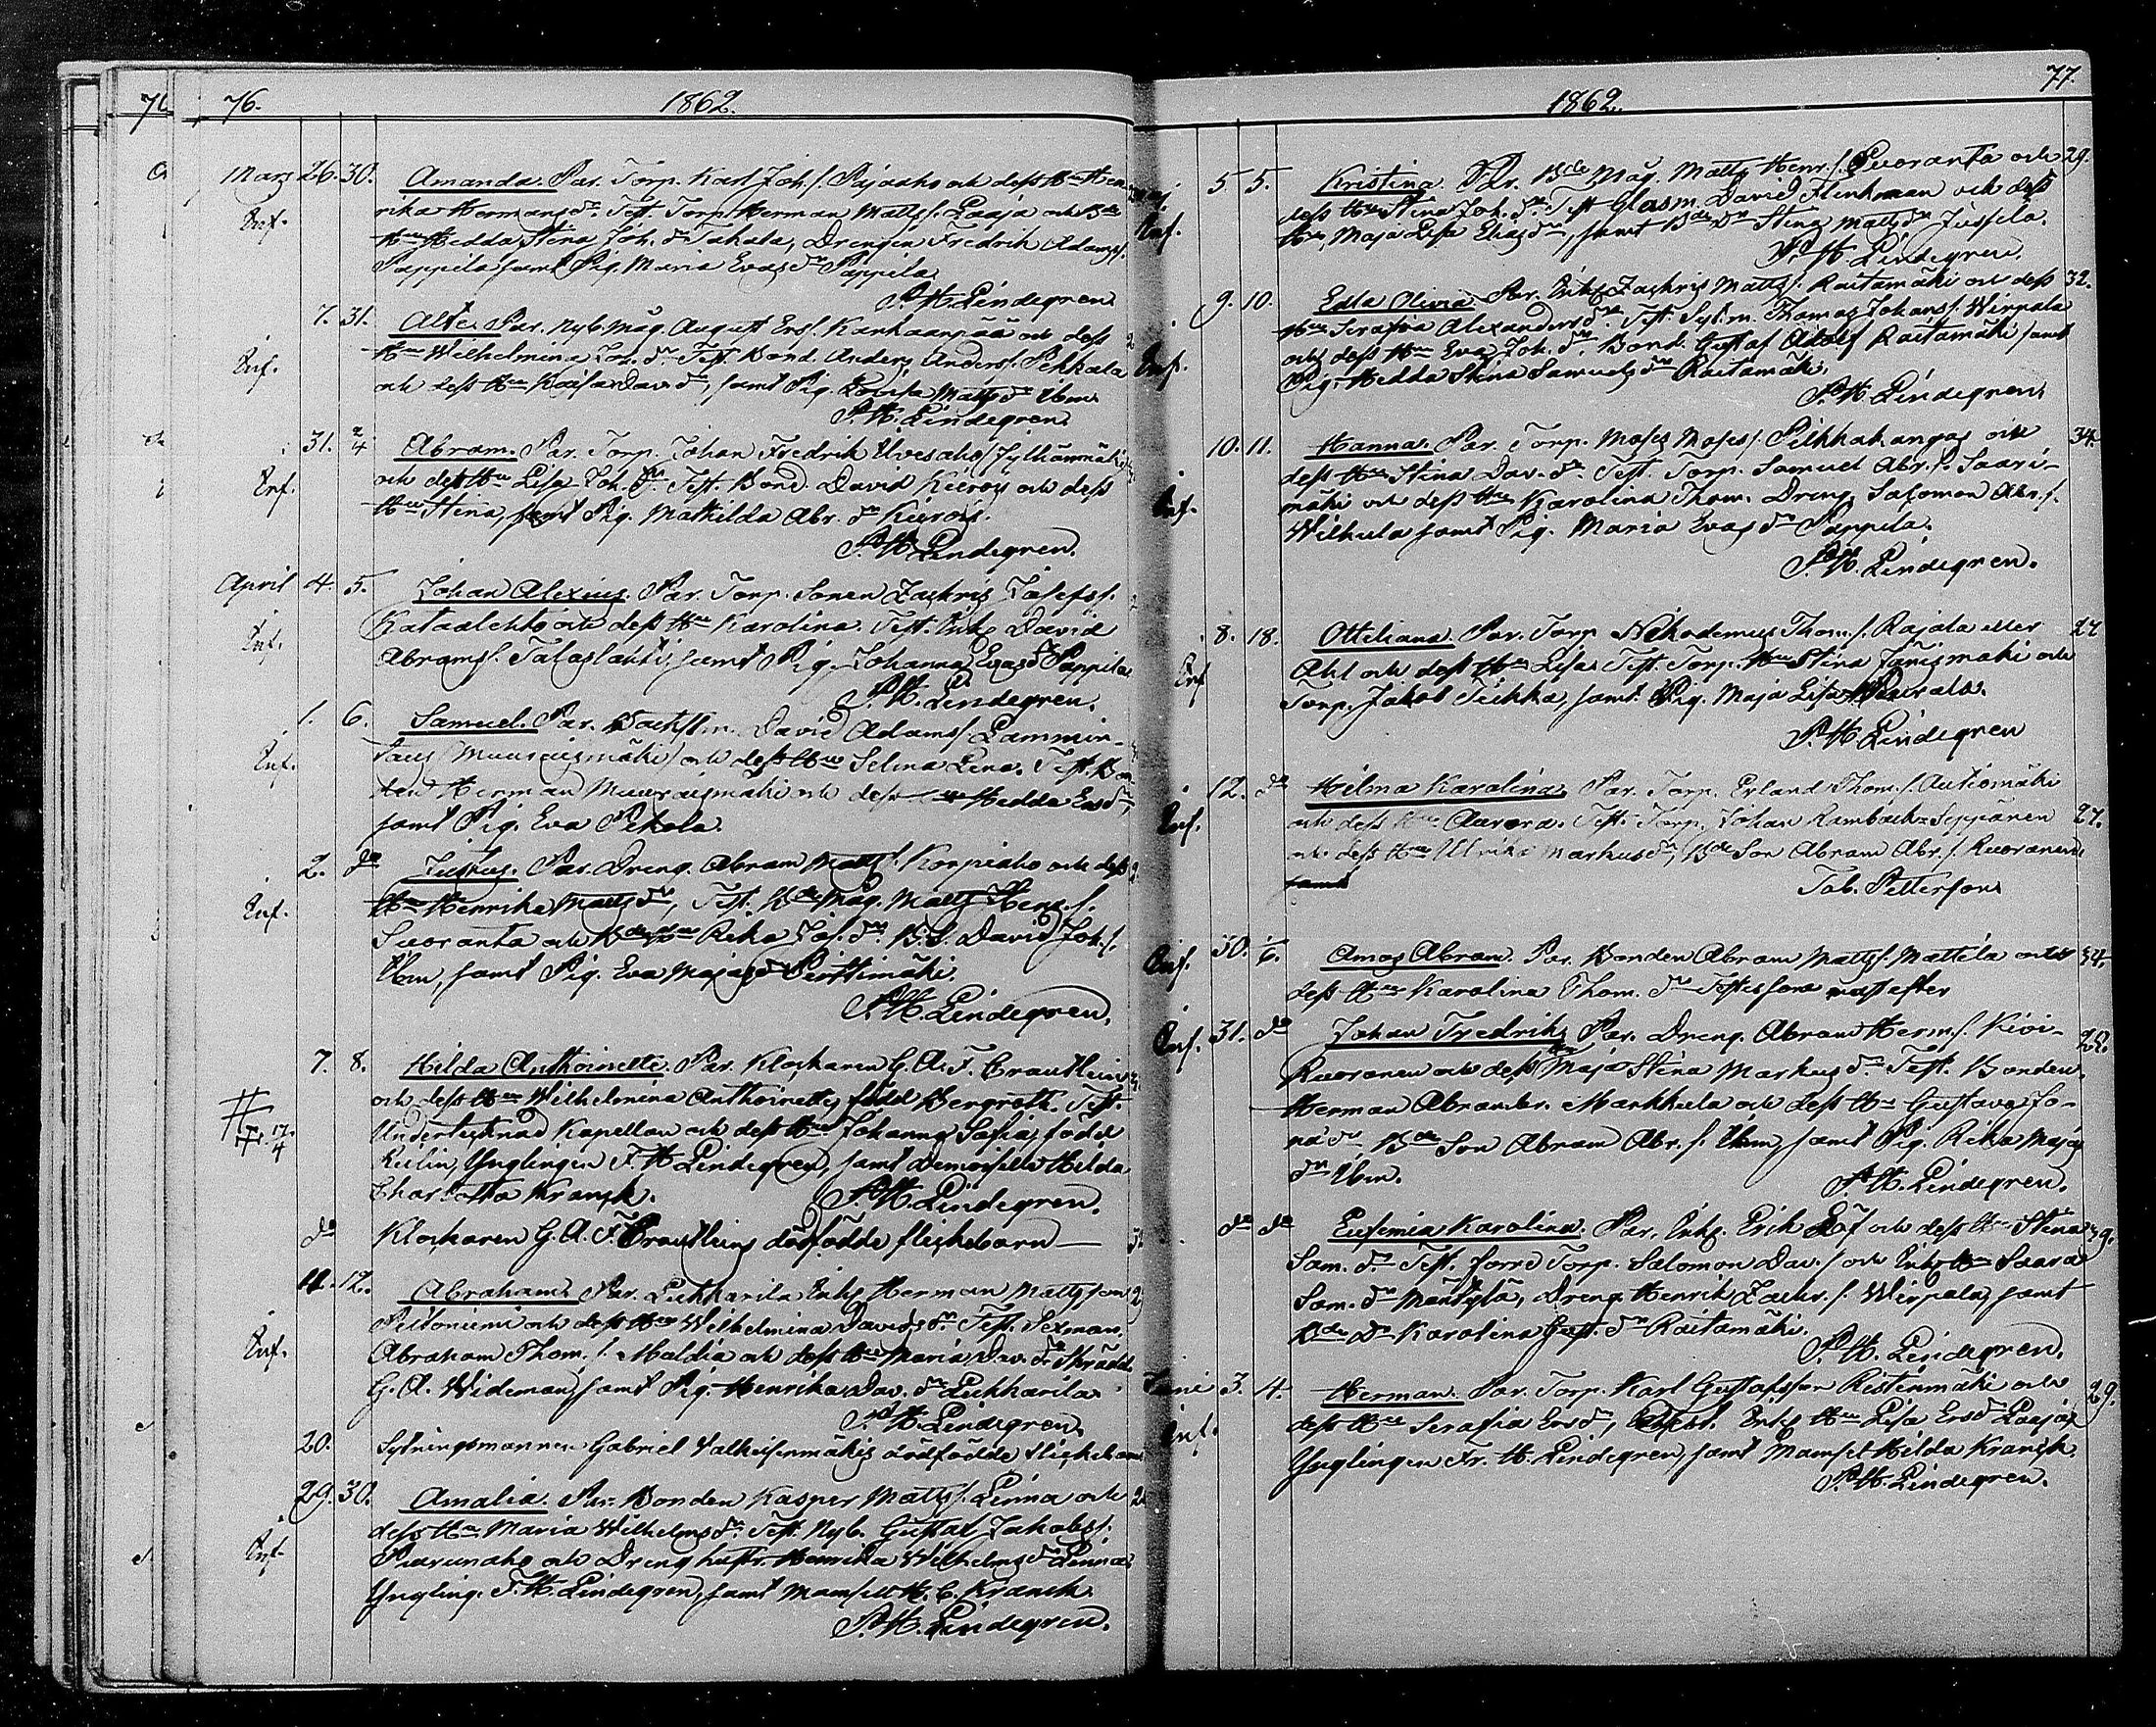 76.
1862.
Mars 26. 30. Amanda. Par. Torp. Karl Joh. s. Pajaaho och dess Hu Hen-
rika Hermansdr. Test. Torp. Herman Matts s. Laaja och Bde
Inf.
Hu Hedda Stina Joh. dr Takala, Drengen Fredrik Adams s.
Pappila samt Pig. Maria Evasdr Pappila.
P. H. Lindegren.
7. 31. Par. Nyb. Måg. August Ers s. Karhaanpää och dess
Inf.
Hu Wilhelmina Joh. dr Test. Bond. Anders Anders s. Pekkala
och dess Hu Kajsa Davdr, samt Pig. Lovisa Mattsdr ibm
P. H. Lindegren.
31. 2/4 Abram. Par. Torp. Johan Fredrik
Inf.
och dess Hu Lisa Joh. dr Test. Bond. David Kierois och dess
Hu Stina, samt Pig. Mathilda Abr. dr Kierois.
P. H. Lindegren.
April 4. 5. Johan Alexius. Par. Torp. Sonen Zachris Josefs s.
Inf.
Kataalehto och dess Hu Karolina. Test. Inhs David
Abrams s. Talaslahti, samt Pig. Johanna Evasdr Pappila
P. H. Lindegren.
1. 6. Samuel. Par. David Adams s. Lammin-
Inf.
taus / Muuraismäki / och dess Hu Selma Lena. Test. Bon-
den Herman Muuraismäki och dess Hu Hedda Ersdr,
samt Pig. Eva Pekola.
2. do Justus. Par. Dreng. Abram Matts s. Korpiaho och dess
Inf.
Hu Henrika Mattsdr, Test. Bde Måg. Matts Henr. s.
Suoranta och Bde Hu Rika Jos. dr B. S. David Joh. s.
ibm, samt Pig. Eva Majasdr Perttimäki.
P. H. Lindegren.
7. 8. Hilda Anthoinette. Par. Klockaren G. A. F. Crauthein
och dess Hu Wilhelmina Anthoinette, född Bergroth. Test.
17/4
Undertecknad Kapellan och dess Hu Johanna Sofia, född
Ynglingen F. H. Lindegren, samt Demoiselle Hilda
Charlotta Kranck.
P. H. Lindegren.
do Klockaren G. A. F. Crautheins dödfödde flickebarn
11. 12. Abraham. Par. Herman Mattsson
Inf.
Peltoniemi och dess Hu Wilhelmina Davidsdr. Test. Sexman.
Abraham Thom. s. Maldia och dess Hu Maria Dav. dr Skrädd.
G. A. Wideman, samt Pig. Henrika Dav. dr
P. H. Lindegren.
20. Sytningsmannen Gabriel dödfödde flickebarn
29. 30. Amalia. Par. Bonden Kasper Matts s. Linna och
Inf.
dess Hu Maria Wilhelmsdr. Test. Nyb. Gustaf Jakobs s.
och Drenghustr. Henrika Wilhelmsdr Linna,
Yngling. F. H. Lindegren, samt Mamsell H. C. Kranck.
P. H. Lindegren.
77.
1862.
Maj 5 5. Kristina. Par. Bde Måg. Matts Henr. s. Suoranta och 29.
Inf.
dess Hu Stina Joh. dr. Test Glasm. David Flinkman och dess
Hu, Maja Lisa Eliasdr, samt Bde Dr Stina Mattsdr Jussila.
P. H. Lindegren.
9. 10. Edla Olivia. Par. Inhs Zachris Matts s. Raitamäki och dess 32.
Inf.
Hu Serafia Alexandersdr. Test. Sytm. Thomas Johans s. Wirpala
och dess Hu Eva Joh. dr. Bond. Gustaf Adolf Raitamäki, samt
Pig. Hedda Stina Samuelsdr Raitamäki.
P. H. Lindegren.
10. 11. Hanna. Par. Torp. Moses Moses s. Pitkäkangas och 34.
Inf.
dess Hu Stina Dav. dr Test. Torp. Samuel Abr. s. Saari-
mäki och dess Hu Karolina Thom. Dreng Salomon Abr. s.
Wilkula samt Pig. Maria Evasdr Pappila.
P. H. Lindegren.
8. 18. Otteliana. Par. Torp Nikodemus Thom. s. Rajala eller 27
Inf
Ahl och dess Hu Lisa Test. Torp. Hu Stina Jänismäki och
Torp. Jakob Tiikka, samt Pig. Maja Lisa
P. H. Lindegren
12. do Hilma Karolina. Par. Torp. Erland Thom. s. Autiomäki
Inf.
och dess Hu Aurora. Test. Torp. Johan Rambäck Seppänen 27.
och dess Hu Ulrika Markusdr, Bde Son Abram Abr. s. Ruoranen,
samt
Tob. Petterson
Inf. 30. 1/6. Amos Abram. Par. Bonden Abram Matts s. Mattila och 34.
dess Hu Karolina Thom. dr
Inf. 31. do Johan Fredrik, Par. Dreng. Abram Herm. s. Kivi- 22.
Ruoranen och dess Hu Maja Stina Markusdr Test. Bonden
Herman Abrambr. Markkula och dess Hu Gustava Jo-
nä dr, Bde Son Abram Abr. s. ibm, samt Pig. Rika Majas
dr ibm.
P. H. Lindegren.
do do Eufemia Karolina. Par. Inhs. Erik Löf och dess Hu Stina 39.
Sam. dr Test. förre Torp. Salomon Dav. s. och Inh Hu Saara
Sam. dr Mäntylä, Dreng Henrik Zachr. s. Wirpala, samt
Bde Dr Karolina Gust. dr Raitamäki.
P. H. Lindegren.
Juni 3. 4. Herman. Par. Torp. Karl Gustafsson Ristinmäki och 29.
Inf.
dess Hu Serafia Ersdr, Test. Inhs Hu Lisa Ersdr Laaja,
Ynglingen Fr. H. Lindegren, samt Mamsel Hilda Kranck.
P. H. Lindegren.